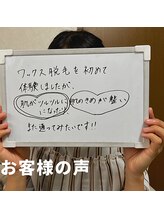 ワックス脱毛を初めて
体験しましたが、
肌がツルツルに
になった♪
肌のきめが整い
また通ってみたいです!!
お客様の声